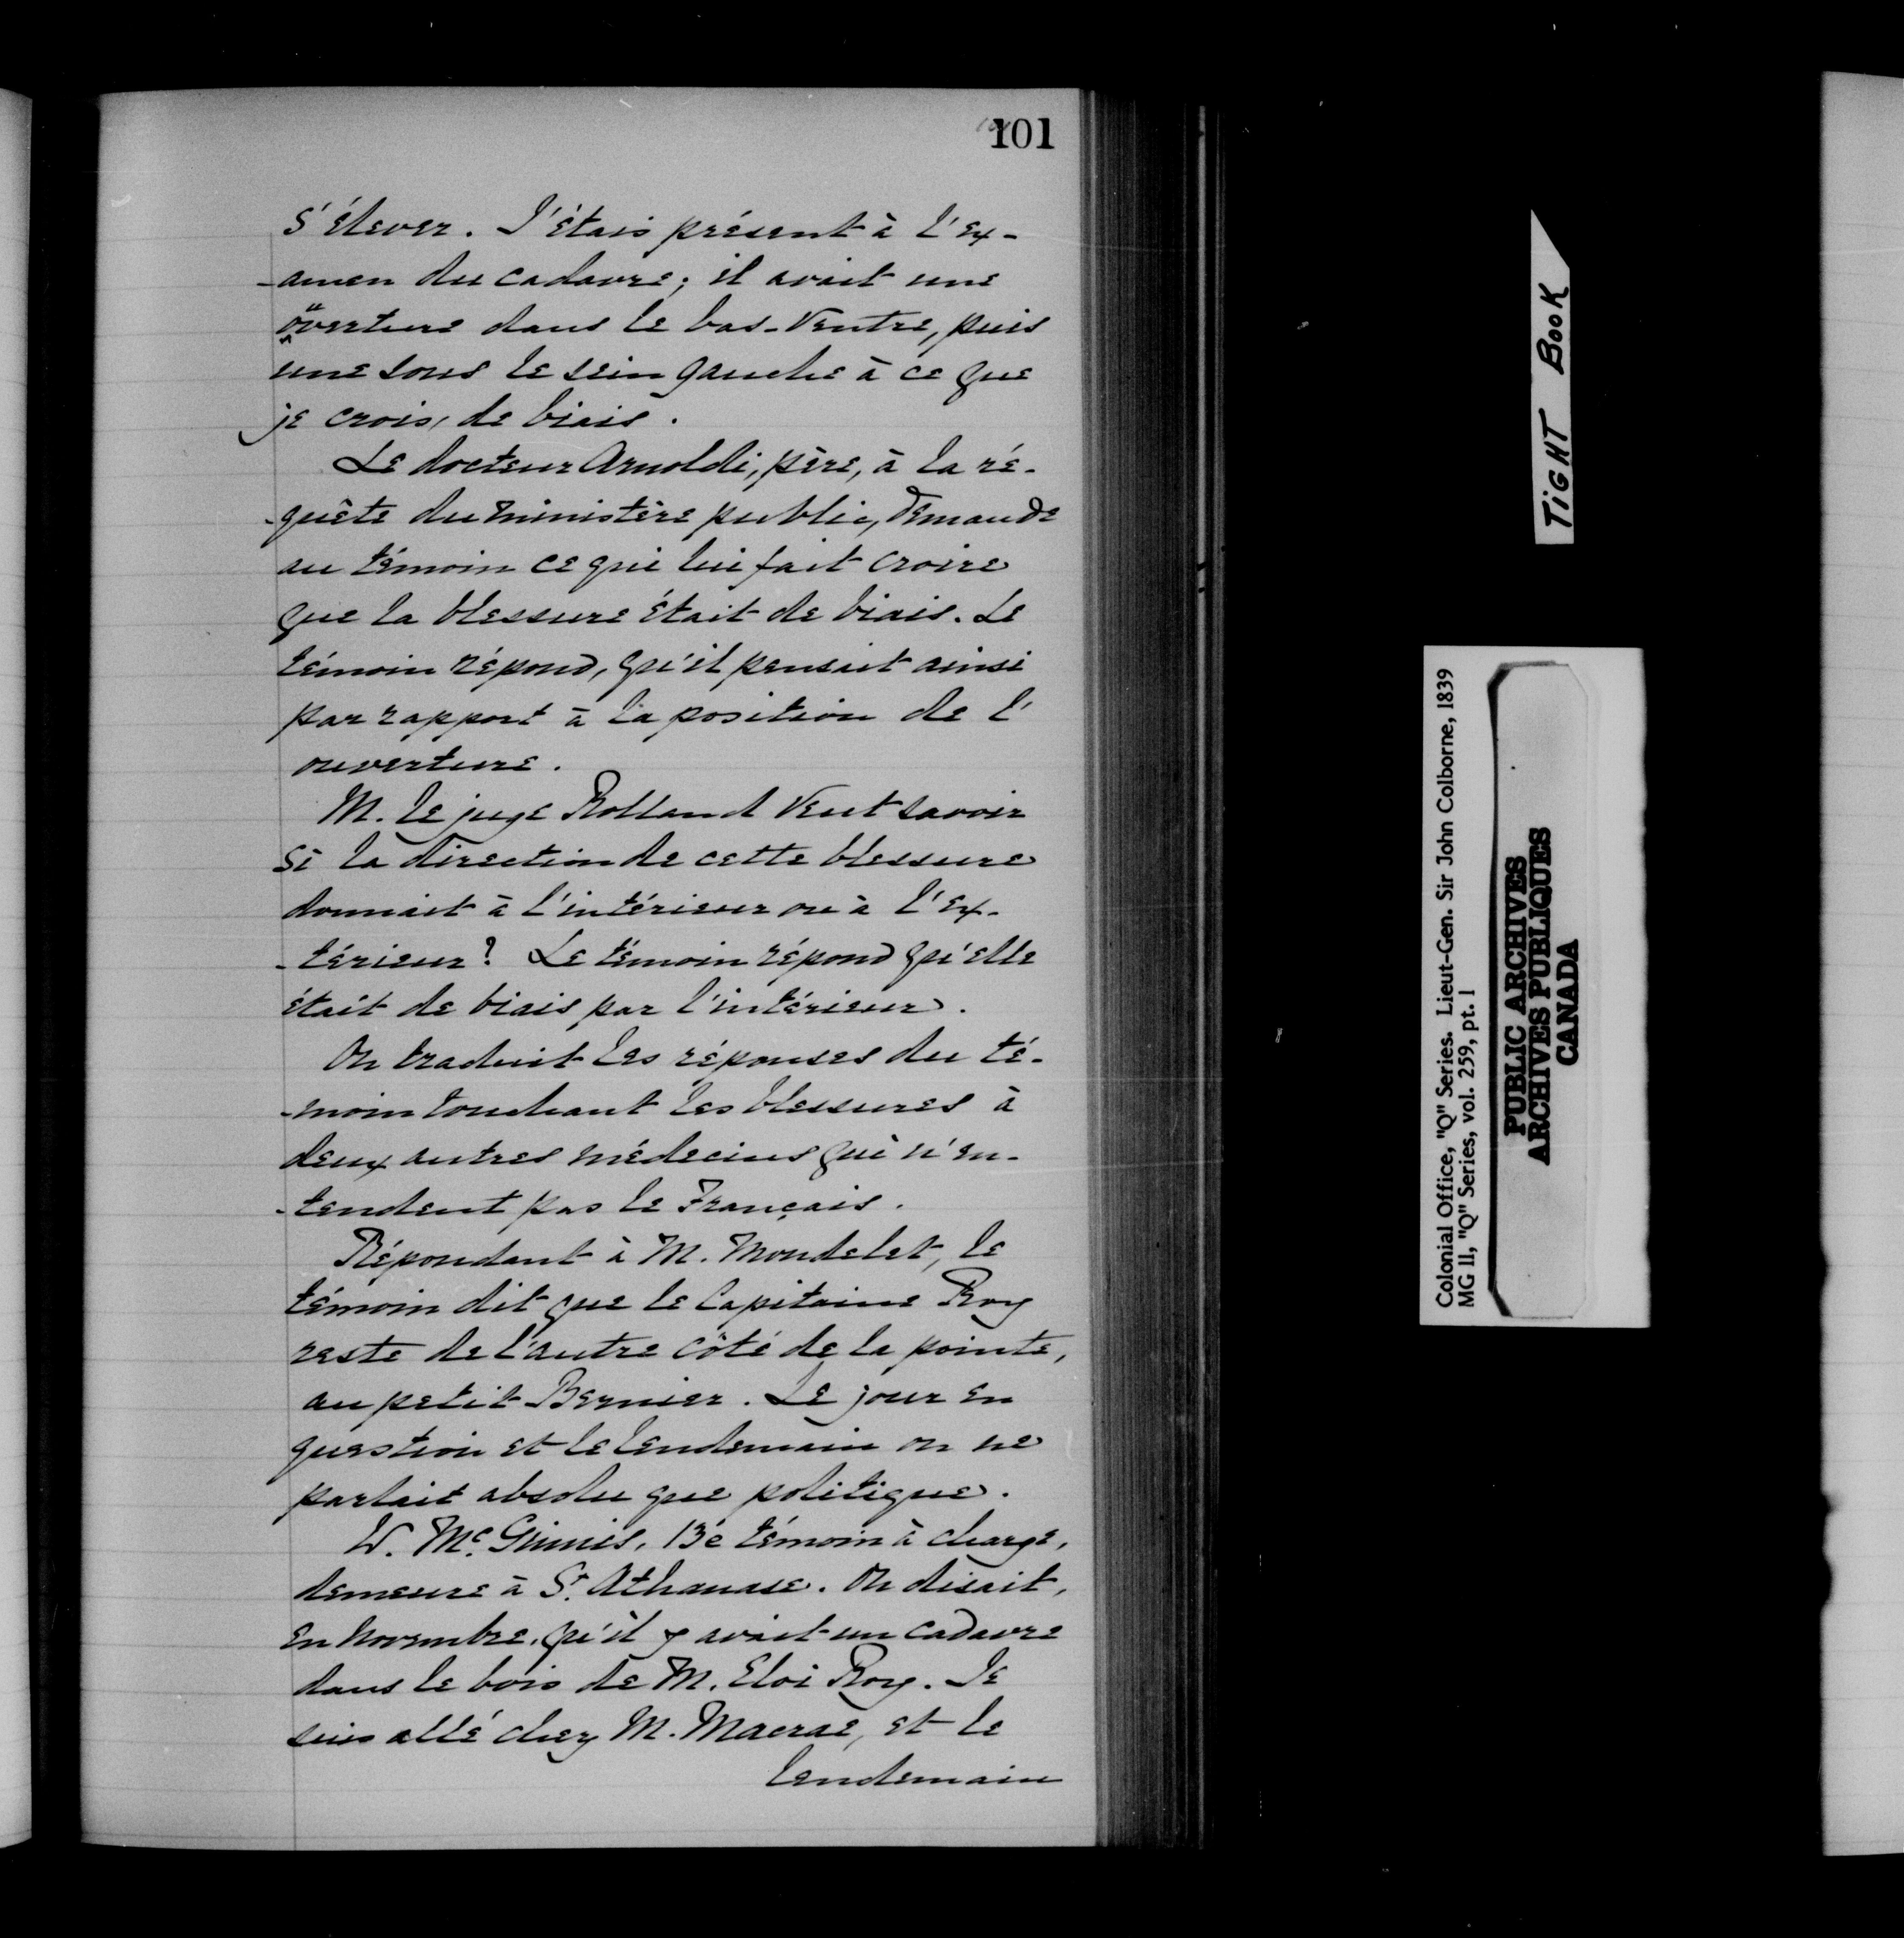 101
s'élever. J'étais présent à l'ex-
-amen du cadavre; il avait une
ouverture dans le bas-ventre, puis
une sous le sein gauche à ce que
je crois, de biais.
Le docteur Arnoldi, père, à la ré-
-quête du ministère public, demande
au témoin ce qui lui fait croire
que la blessure était de biais. Le
témoin répond, qu'il pensait ainsi
par rapport à la position de l'
ouverture.
M. le juge Rolland veut savoir
si la direction de cette blessure
donnait à l'intérieur ou à l'ex-
-térieur? Le témoin répond qu'elle
était de biais par l'intérieur.
On traduit les réponses du té-
-moin touchant les blessures à
deux autres médecins qui n'en-
-tendent pas le Français.
Répondant à M. Mondelet, le
témoin dit que le Capitaine Roy
reste de l'autre côté de la pointe,
au petit Bernier. Le jour en
question et le lendemain on ne
parlait absolu que politique.
W. McGinnis, 13e témoin à charge,
demeure à St. Athanase. On disait,
en novembre, qu'il y avait un cadavre
dans le bois de M. Eloi Roy. Je
suis allé chez M. Macrae, et le
lendemain
TIGHT BOOK
Colonial Office, "Q" Series. Lieut-Gen. Sir John Colborne, 1839
MG 11, "Q" Series, vol. 259, pt. 1
PUBLIC ARCHIVES
ARCHIVES PUBLIQUES
CANADA